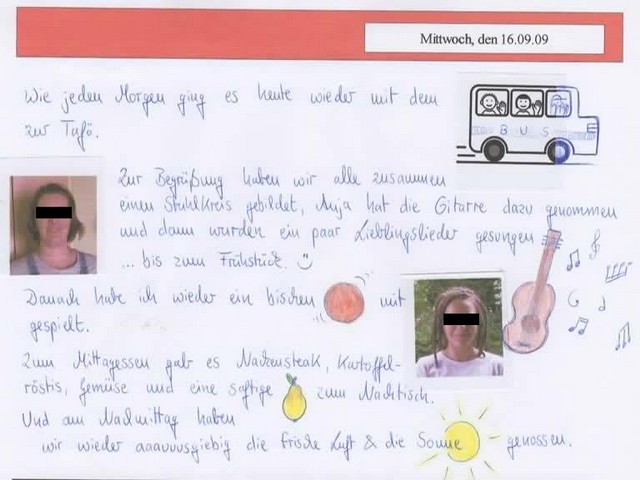 Mittwoch, den 16.09.09
Wie jeden Morgen ging es heute wieder mit dem
BUS
zur Tafö.
Zur Begrüßung haben wir alle zusammen
einen Stuhlkreis gebildet, Anja hat die Gitarre dazu genommen
und dann wurden ein paar Lieblingslieder gesungen
... bis zum Frühstück.
Danach habe ich wieder ein bischen mit
gespielt.
Zum Mittagessen gab es Nackensteak, Kartoffel-
röstis, Gemüse und eine saftige zum Nachtisch.
Und am Nachmittag haben
wir wieder aaauuusgiebig die frische Luft & die Sonne genossen.